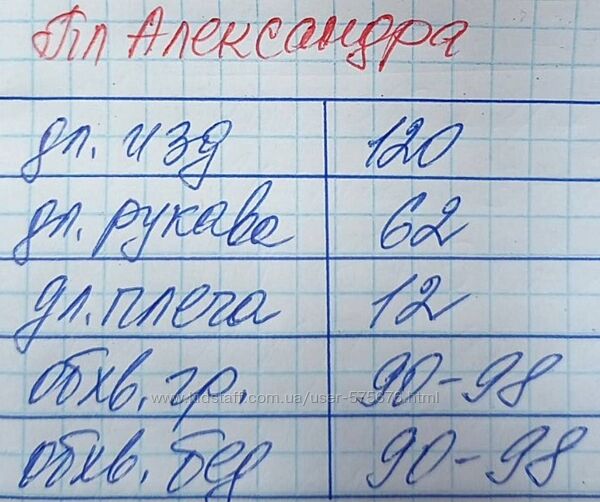 Пл Александра
дл. изд 120
дл. рукава 62
дл. плеча 12
обхв. гр. 90-98
www.kidstaff.com.ua/user-575676.html
обхв. бед 90-98